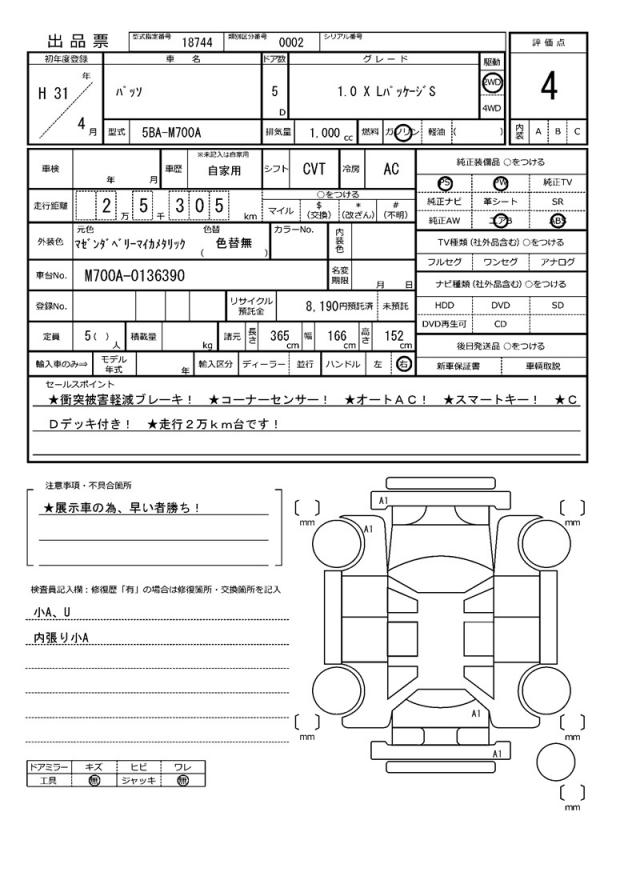 出品票 型式指定番号 18744 類別区分番号 0002 シリアル番号
評価点
4
内装 A B C
初年度登録 車名 ドア数 グレード 駆動
H 31 年 4 月
パッソ 5 D 1.0 X LパッケージS 2WD 4WD
型式 5BA-M700A 排気量 1,000 cc 燃料 ガソリン 軽油 ( )
車検 年 月 車歴 ※未記入は自家用 自家用 シフト CVT 冷房 AC
走行距離 2 万 5 千 3 0 5 km
○をつける
マイル $ (交換) * (改ざん) # (不明)
外装色 元色 マゼンダベリーマイカメタリック 色替 色替無 ( ) カラーNo. 内装色
車台No. M700A-0136390 名変期限 月 日
登録No. リサイクル預託金 8,190円預託済 未預託
定員 5( ) 人 積載量 kg 諸元 長さ 365 cm 幅 166 cm 高さ 152 cm
輸入車のみ⇒ モデル年式 年 輸入区分 ディーラー 並行 ハンドル 左 右
純正装備品 ○をつける
PS PW 純正TV
純正ナビ 革シート SR
純正AW エアB ABS
TV種類 (社外品含む) ○をつける
フルセグ ワンセグ アナログ
ナビ種類 (社外品含む) ○をつける
HDD DVD SD
DVD再生可 CD
後日発送品 ○をつける
新車保証書 車輌取説
セールスポイント
★衝突被害軽減ブレーキ! ★コーナーセンサー! ★オートAC! ★スマートキー! ★C
Dデッキ付き! ★走行2万km台です!
注意事項・不具合箇所
★展示車の為、早い者勝ち!
検査員記入欄:修復歴「有」の場合は修復箇所・交換箇所を記入
小A、U
内張り小A
ドアミラー キズ ヒビ ワレ
工具 無 ジャッキ 無
A1
[ ] mm
[ ] mm
A1
A1
[ ] mm
[ ] mm
A1
[ ] mm